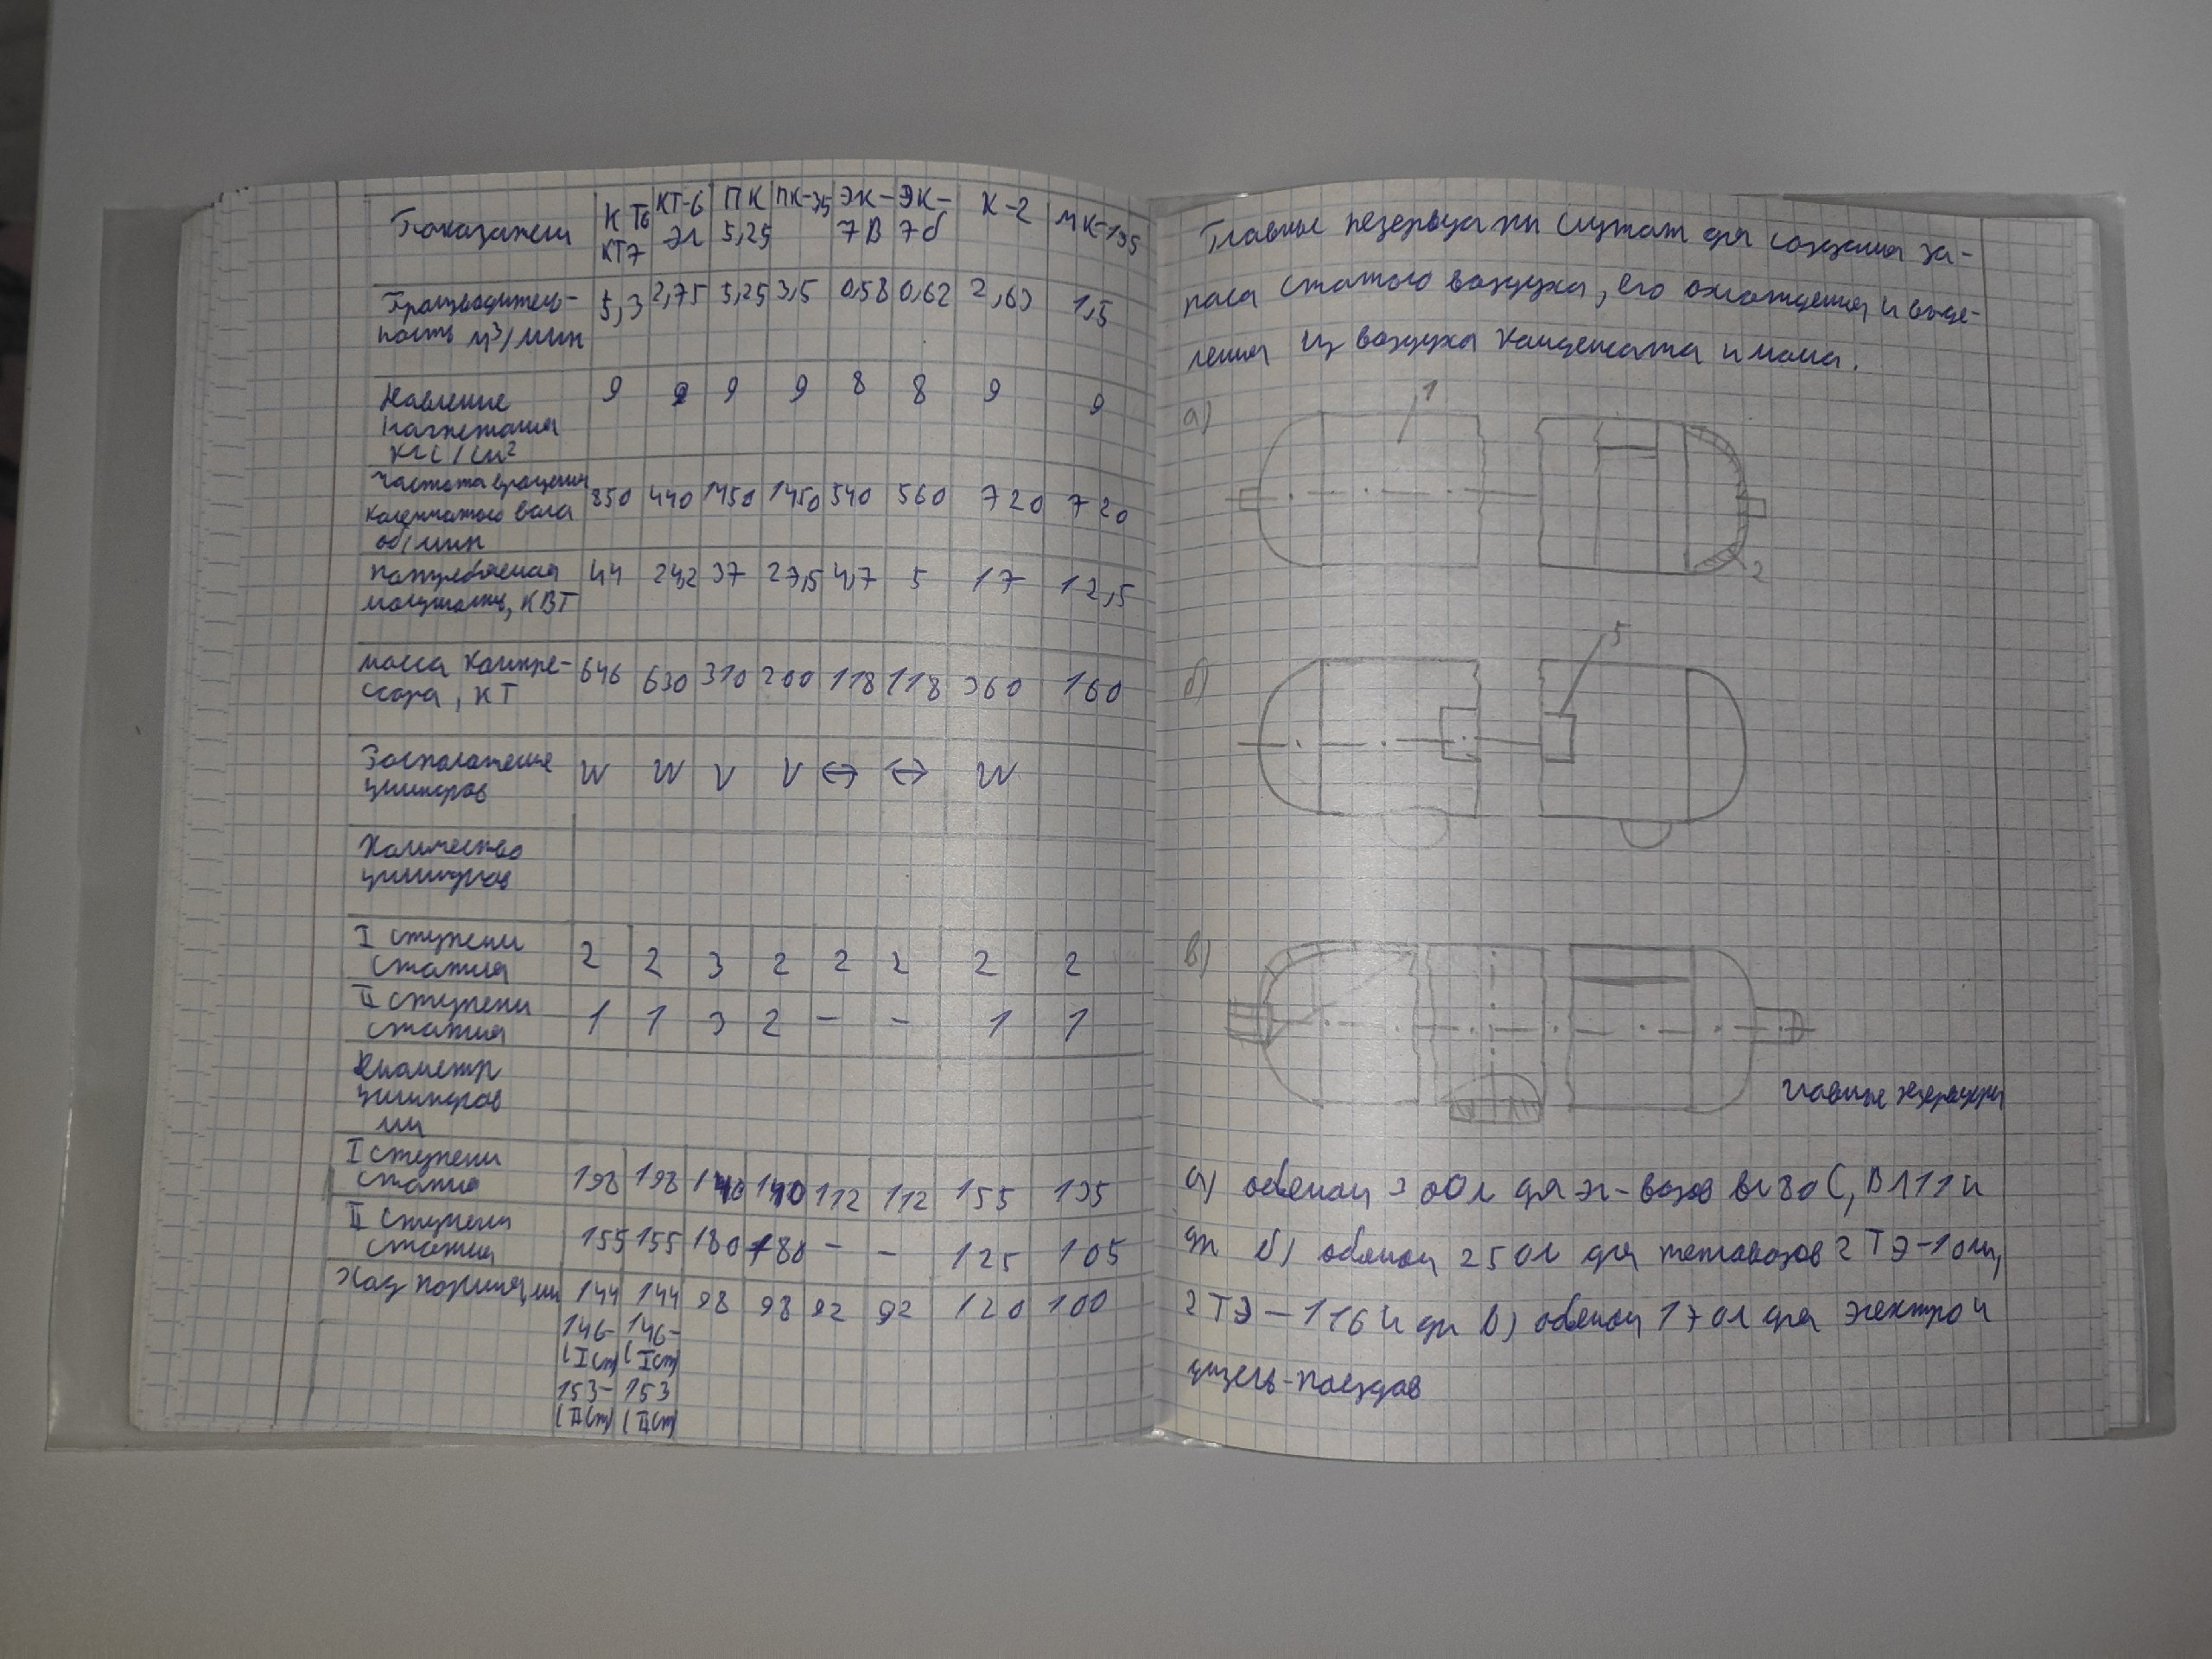 Показатели КТ6 КТ7 КТ-6 Эл ПК 5,25 ПК-35 ЭК-7В ЭК-7б К-2 МК-135
Производитель-
ность м³/мин 5,3 2,75 5,25 3,5 0,58 0,62 2,63 1,5
Давление
нагнетания
кгс/см² 9 9 9 9 8 8 9 9
Частота вращения
коленчатого вала
об/мин 850 440 1450 1450 540 560 720 720
Потребляемая
мощность, КВТ 44 24,2 37 27,5 4,7 5 17 12,5
Масса компре-
ссора, КГ 646 630 310 200 118 118 360 160
Расположение
цилиндров W W V V ↔ ↔ W
Количество
цилиндров
I ступени
сжатия 2 2 3 2 2 2 2 2
II ступени
сжатия 1 1 3 2 – – 1 1
Диаметр
цилиндров
мм
I ступени
сжатия 198 198 140 140 112 112 155 135
II ступени
сжатия 155 155 180 180 – – 125 105
Ход поршня, мм 144 144 98 98 92 92 120 100
146- 146-
(Iст) (Iст)
153- 153
(IIст) (IIст)
Главные резервуары служат для создания за-
паса сжатого воздуха, его охлаждения и выде-
ления из воздуха конденсата и масла.
а) 1
2
б) 5
в)
главные резервуары
а) объемом 300л для эл-возов вл80С, ВЛ11 и
др б) объемом 250л для тепловозов 2ТЭ-10м,
2ТЭ-116 и др в) объемом 170л для электро и
дизель-поездов